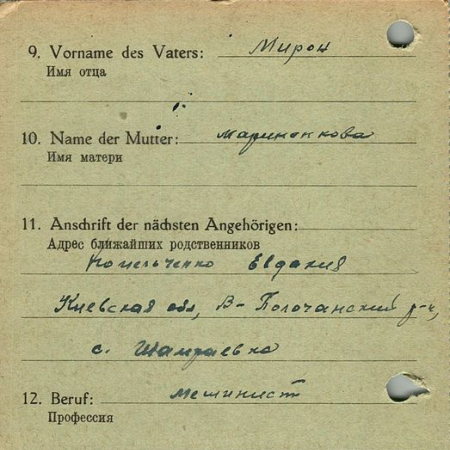 9. Vorname des Vaters: Мирон
Имя отца
10. Name der Mutter: Мариненкова
Имя матери
11. Anschrift der nächsten Angehörigen:
Адрес ближайших родственников
Евдакия
Киевская обл, В-Полочанский р-н,
с. Шамраевка
12. Beruf: мешинист
Профессия